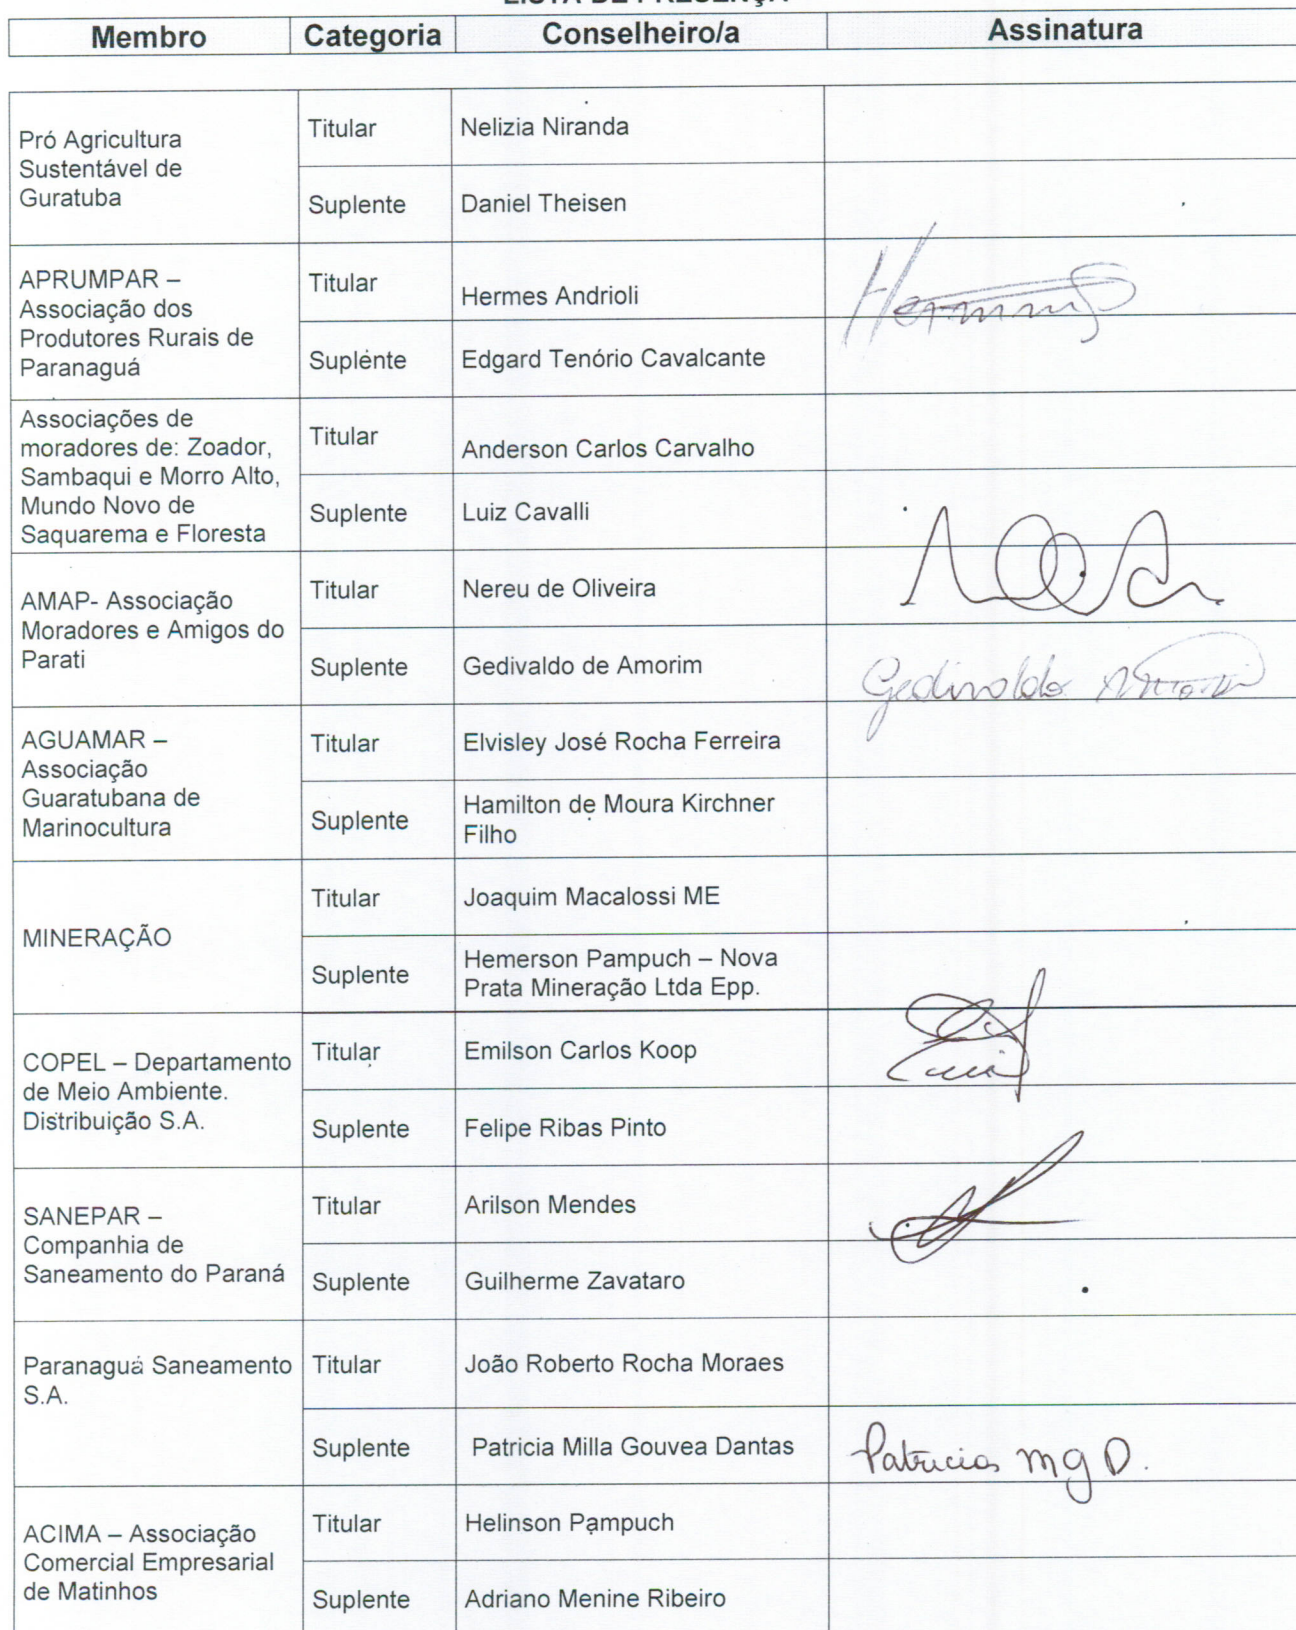 LISTA DE PRESENÇA
Membro Categoria Conselheiro/a Assinatura
Pró Agricultura
Sustentável de
Guratuba
Titular Nelizia Niranda
Suplente Daniel Theisen
APRUMPAR –
Associação dos
Produtores Rurais de
Paranaguá
Titular Hermes Andrioli
Suplente Edgard Tenório Cavalcante
Associações de
moradores de: Zoador,
Sambaqui e Morro Alto,
Mundo Novo de
Saquarema e Floresta
Titular Anderson Carlos Carvalho
Suplente Luiz Cavalli
AMAP- Associação
Moradores e Amigos do
Parati
Titular Nereu de Oliveira
Suplente Gedivaldo de Amorim Gedivaldo
AGUAMAR –
Associação
Guaratubana de
Marinocultura
Titular Elvisley José Rocha Ferreira
Suplente Hamilton de Moura Kirchner
Filho
MINERAÇÃO
Titular Joaquim Macalossi ME
Suplente Hemerson Pampuch – Nova
Prata Mineração Ltda Epp.
COPEL – Departamento
de Meio Ambiente.
Distribuição S.A.
Titular Emilson Carlos Koop
Suplente Felipe Ribas Pinto
SANEPAR –
Companhia de
Saneamento do Paraná
Titular Arilson Mendes
Suplente Guilherme Zavataro
Paranaguá Saneamento
S.A.
Titular João Roberto Rocha Moraes
Suplente Patricia Milla Gouvea Dantas Patricia M G D.
ACIMA – Associação
Comercial Empresarial
de Matinhos
Titular Helinson Pampuch
Suplente Adriano Menine Ribeiro